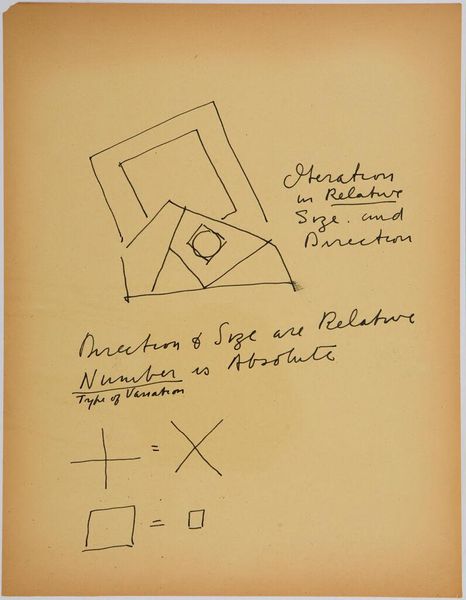 Iteration
in Relative
Size. and
Direction
Direction & Size are Relative
Number is Absolute
Type of Variation
+ = X
□ = □